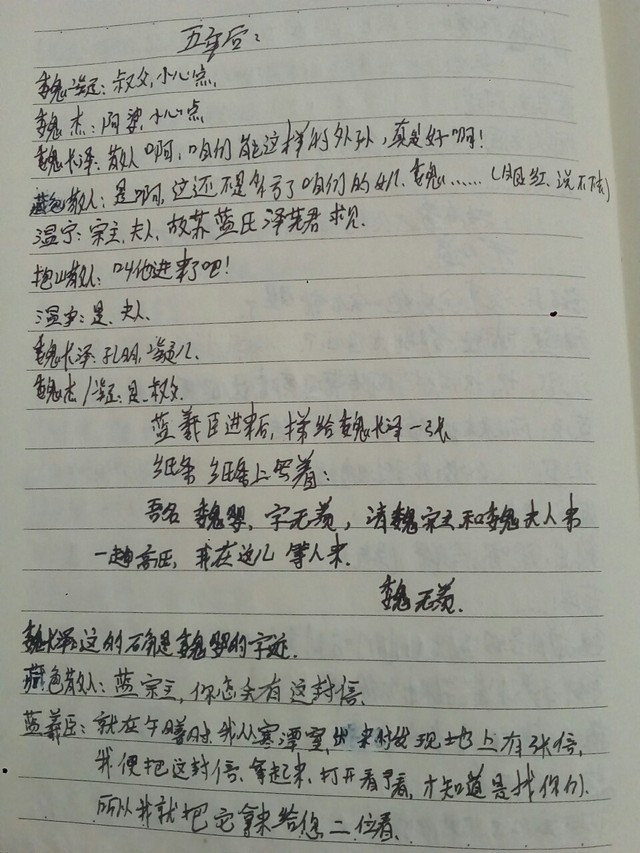 五年后：
魏凝：叔父，小心点，
魏杰：阿婆，小心点
魏长泽：散人啊，咱们能这样的外孙，真是好啊！
藏色散人：是啊，这还不是多亏了咱们的女儿，魏……（眼红，说不下去）
温宁：宗主，夫人，故苏蓝氏泽芜君求见.
抱山散人：叫他进来了吧！
温宁：是，夫人.
魏长泽：孔明，凝儿.
魏杰/凝：是，叔父.
蓝羲臣进来后，拿给魏长泽一张
纸条 纸条上写着：
吾名 魏婴，字无羡，请魏宗主和魏夫人来
一趟 氏，我在这儿 等人来.
魏无羡.
魏长泽：这的确是魏婴的字迹.
藏色散人：蓝宗主，你怎会有这封信.
蓝羲臣：就在午膳时，我从寒潭室出来时发现地上有张信，
我便把这封信，拿起来，打开看了看，才知道是找你们，
所以我就把它拿来给您二位看.